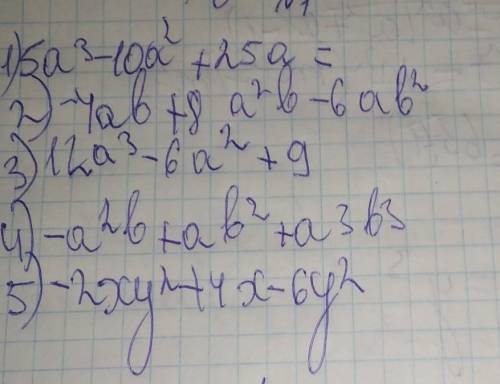 1) 5a³ - 10a² + 25a =
2) -4ab + 8 a²b - 6ab²
3) 12a³ - 6a² + 9
4) -a²b + ab² + a3b3
5) -2xy² + 4x - 6y²